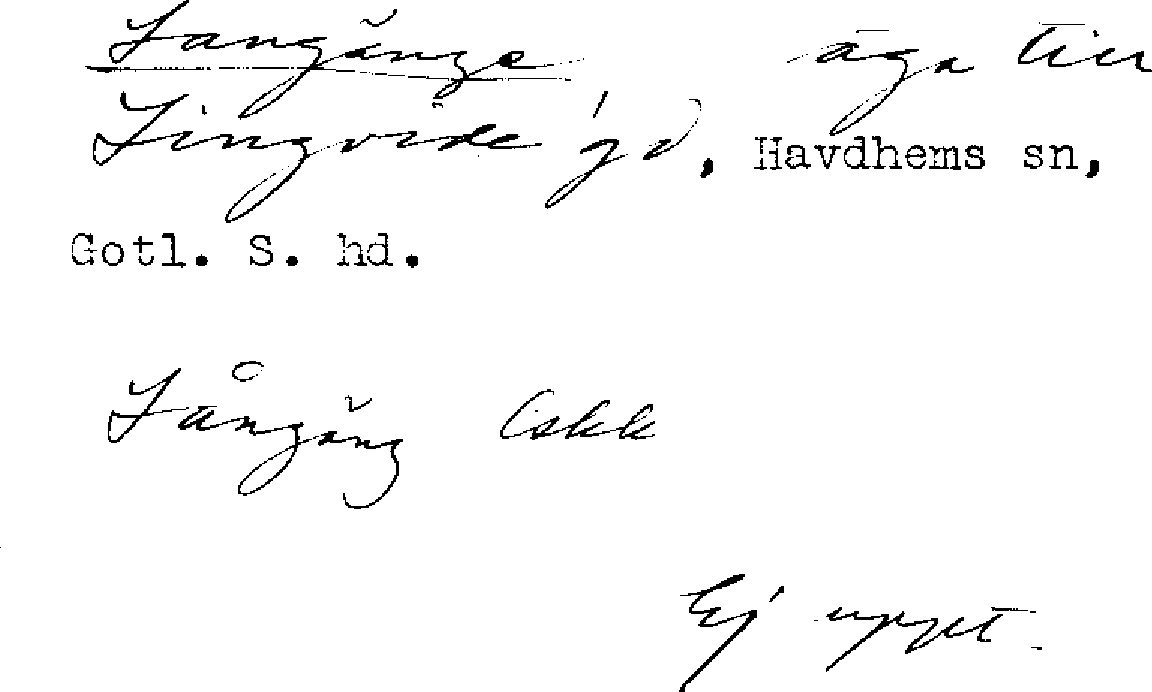 Langånge äga till
Lingvide gd, Havdhems sn,
Gotl. S. hd.
Långång Cskk
Ej uppt.